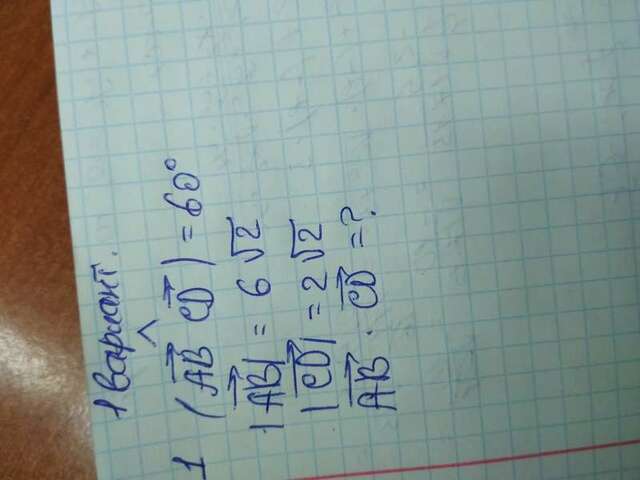 1 вариант.
1 (AB^CD) = 60°
|AB| = 6√2
|CD| = 2√2
AB · CD = ?